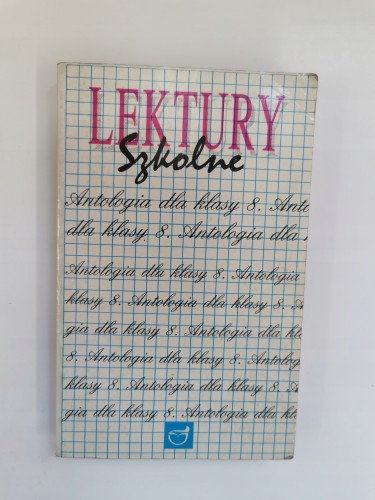 LEKTURY
Szkolne
Antologia dla klasy 8. Anto
dla klasy 8. Antologia dla
Antologia dla klasy 8. Antologia
klasy 8. Antologia dla klasy 8. A
gia dla klasy 8. Antologia dla kla
8. Antologia dla klasy 8. Antolog
klasy 8. Antologia dla klasy 8. A
gia dla klasy 8. Antologia dla kla